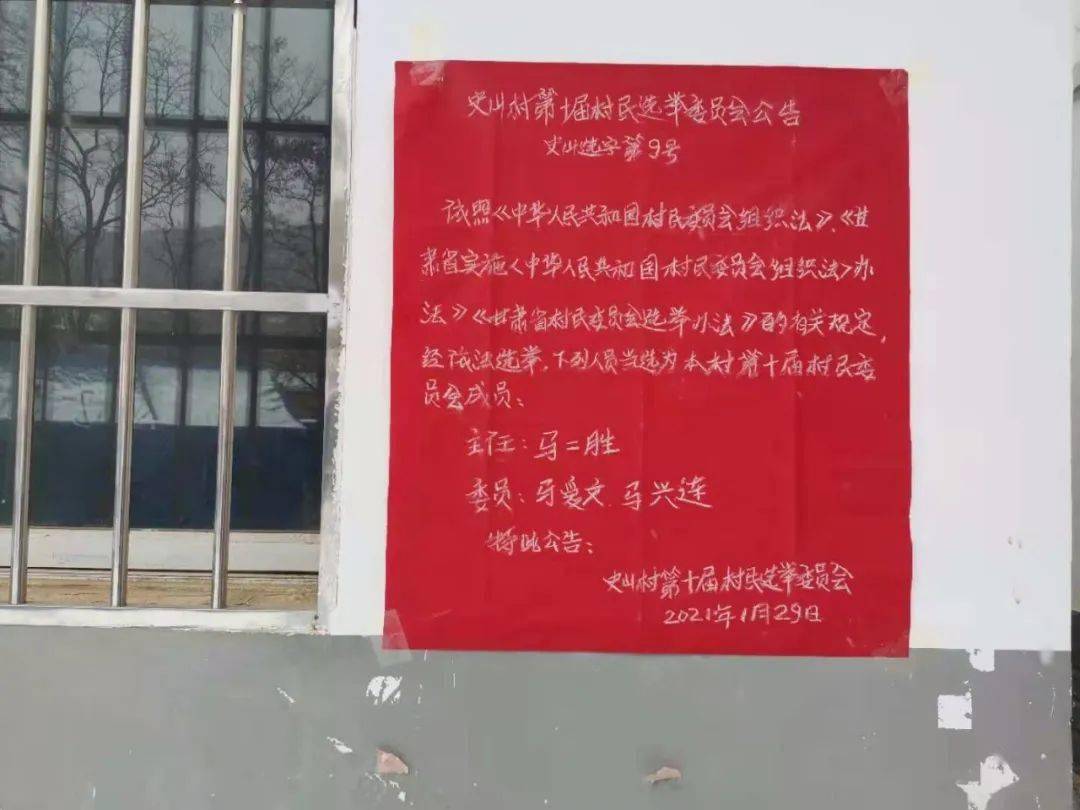 史山村第十届村民选举委员会公告
史山选字第9号
依照《中华人民共和国村民委员会组织法》、《甘
肃省实施〈中华人民共和国村民委员会组织法〉办
法》《甘肃省村民委员会选举办法》的有关规定，
经依法选举，下列人员当选为本村第十届村民委
员会成员：
主任：马二胜
委员：马爱文 马兴连
特此公告：
史山村第十届村民选举委员会
2021年1月29日